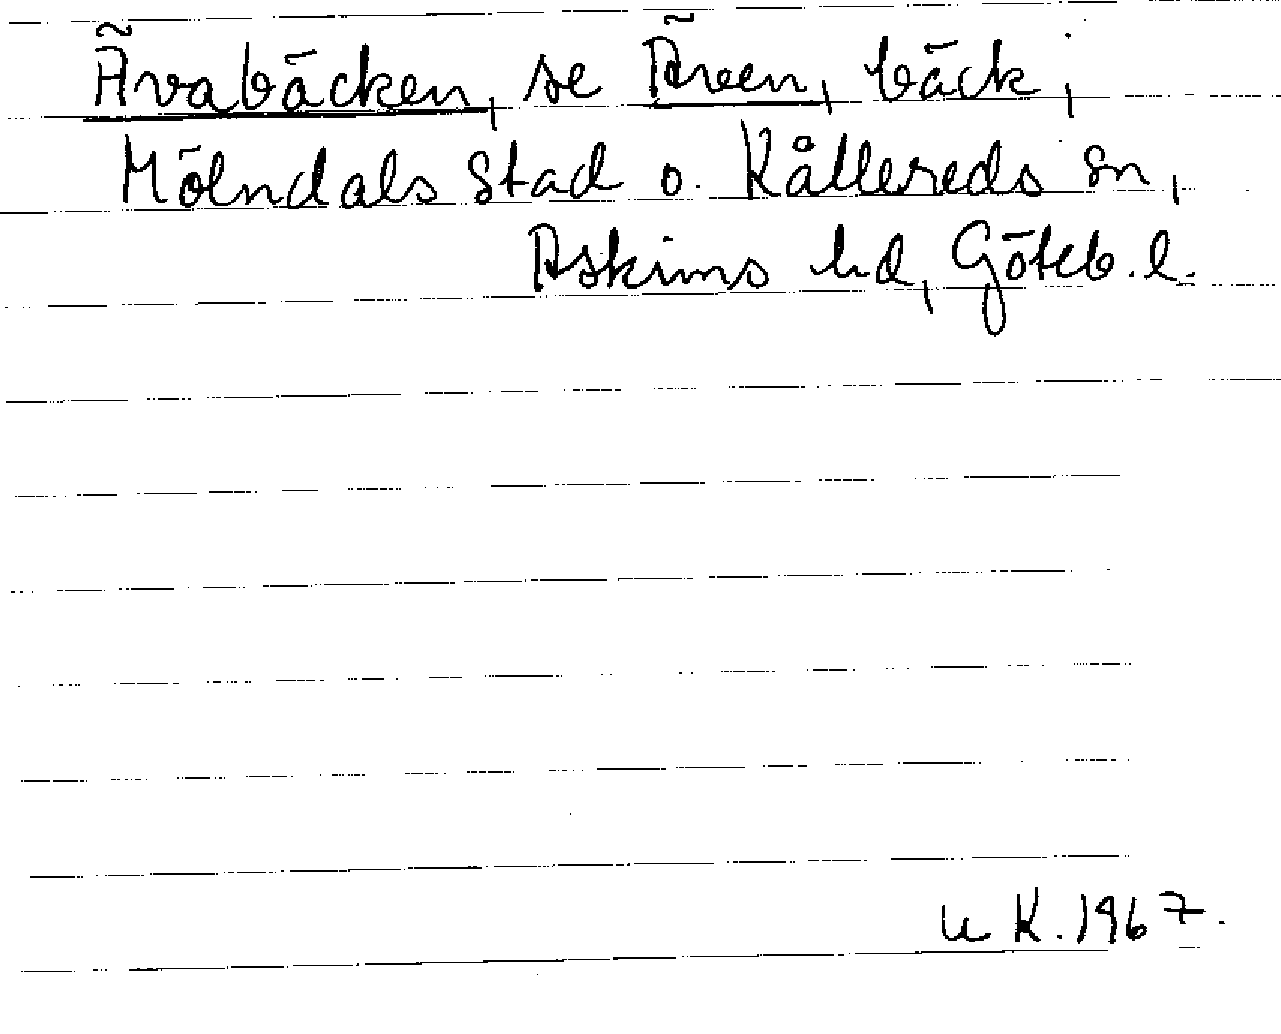 Ävabäcken, se Äveen, bäck,
Mölndals stad o. Kållereds sn,
Askims hd, Göteb. l.
u K. 1967.